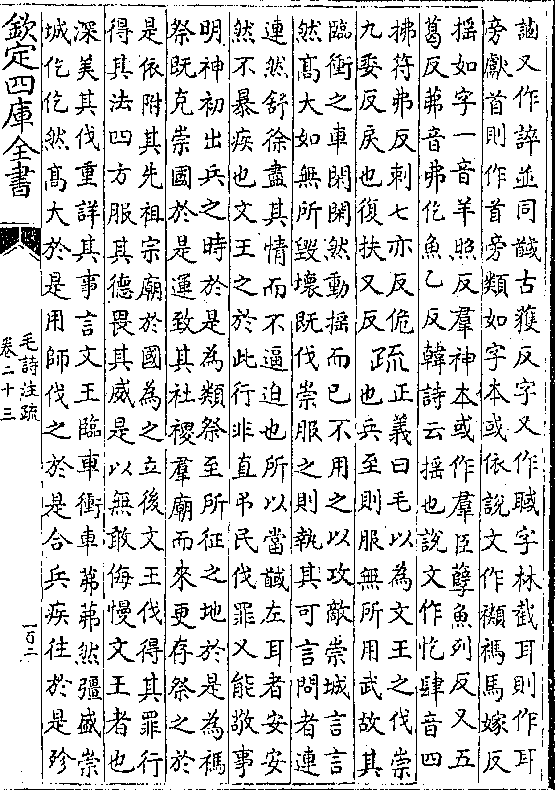 訩又作誶並同馘古獲反字又作聝字林截耳則作耳
旁獻首則作首旁類如字本或依說文作禷禡馬嫁反
揺如字一音羊照反羣神本或作羣臣孽魚列反又五
葛反茀音弗仡魚乙反韓詩云揺也說文作忔肆音四
拂符弗反刺七亦反佹
九委反戾也復扶又反疏正義曰毛以為文王之伐崇
也兵至則服無所用武故其
臨衝之車閑閑然動揺而已不用之以攻敵崇城言言
然髙大如無所毀壞既伐崇服之則執其可言問者連
連然舒徐盡其情而不逼迫也所以當馘左耳者安安
然不暴疾也文王之於此行非直弔民伐罪又能敬事
明神初出兵之時於是為類祭至所征之地於是為禡
祭既克崇國於是運致其社稷羣廟而來更存祭之於
是依附其先祖宗廟於國為之立後文王伐得其罪行
得其法四方服其德畏其威是以無敢侮慢文王者也
深美其伐重詳其事言文王臨車衝車茀茀然彊盛崇
城仡仡然髙大於是用師伐之於是合兵疾往於是殄
欽定四庫全書
毛詩注疏
卷二十三
一百二